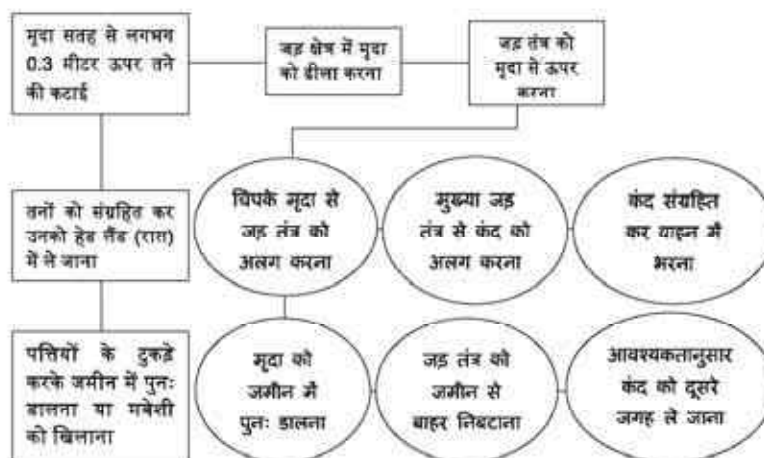 मृदा सतह से लगभग
0.3 मीटर ऊपर तने
की कटाई
जड़ क्षेत्र में मृदा
को ढीला करना
जड़ तंत्र को
मृदा से ऊपर
करना
तनों को संग्रहित कर
उनको हेड लैंड (रास)
में ले जाना
चिपके मृदा से
जड़ तंत्र को
अलग करना
मुख्या जड़
तंत्र से कंद को
अलग करना
कंद संग्रहित
कर वाहन में
भरना
पत्तियों के टुकड़े
करके जमीन में पुनः
डालना या मवेशी
को खिलाना
मृदा को
जमीन में
पुनः डालना
जड़ तंत्र को
जमीन से
बाहर निबटाना
आवश्यकतानुसार
कंद को दूसरे
जगह ले जाना